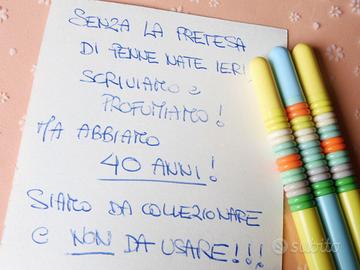 SENZA LA PRETESA
DI PENNE NATE IERI
SCRIVIAMO e
PROFUMIAMO!
MA ABBIAMO
40 ANNI!
SIAMO DA COLLEZIONARE
e NON DA USARE!!!
subito